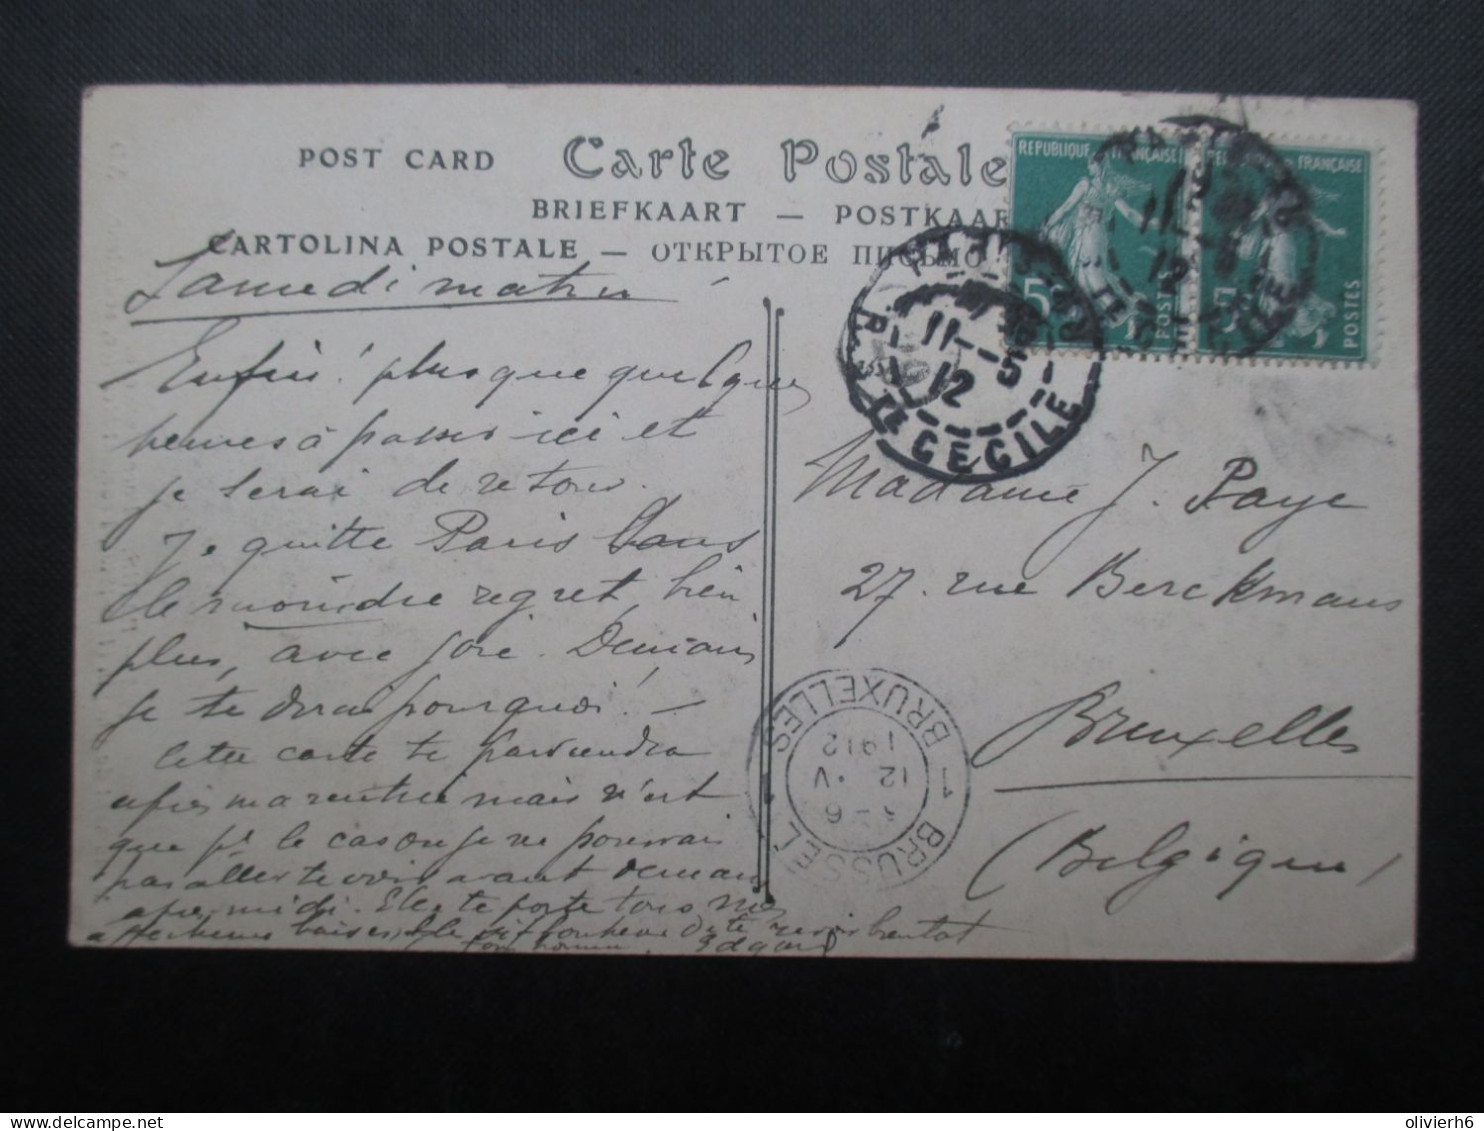 POST CARD Carte Postale
BRIEFKAART — POSTKAAR
CARTOLINA POSTALE — ОТКРЫТОЕ ПИСЬМО
REPUBLIQUE FRANÇAISE
5c
POSTES
FRANÇAISE
5
POSTES
11 - 5
12
R. STE CECILE
11 - 5
12
Samedi matin
Enfin! plus que quelques
heures à passer ici et
je serai de retour.
Je quitte Paris sans
le moindre regret, bien
plus, avec joie. Demain
je te dirai pourquoi! —
Cette carte te parviendra
après ma rentrée mais n'est
que pr le cas où je ne pourrais
pas aller te voir avant demain
après midi. Elle te porte tous mes
affectueux baisers, le vif bonheur de te revoir bientôt
ton Edgard
Madame J. Paye
27. rue Berckmans
Bruxelles
(Belgique)
1 BRUXELLES
BRUSSEL 1
6
12 V
1912
olivierh6